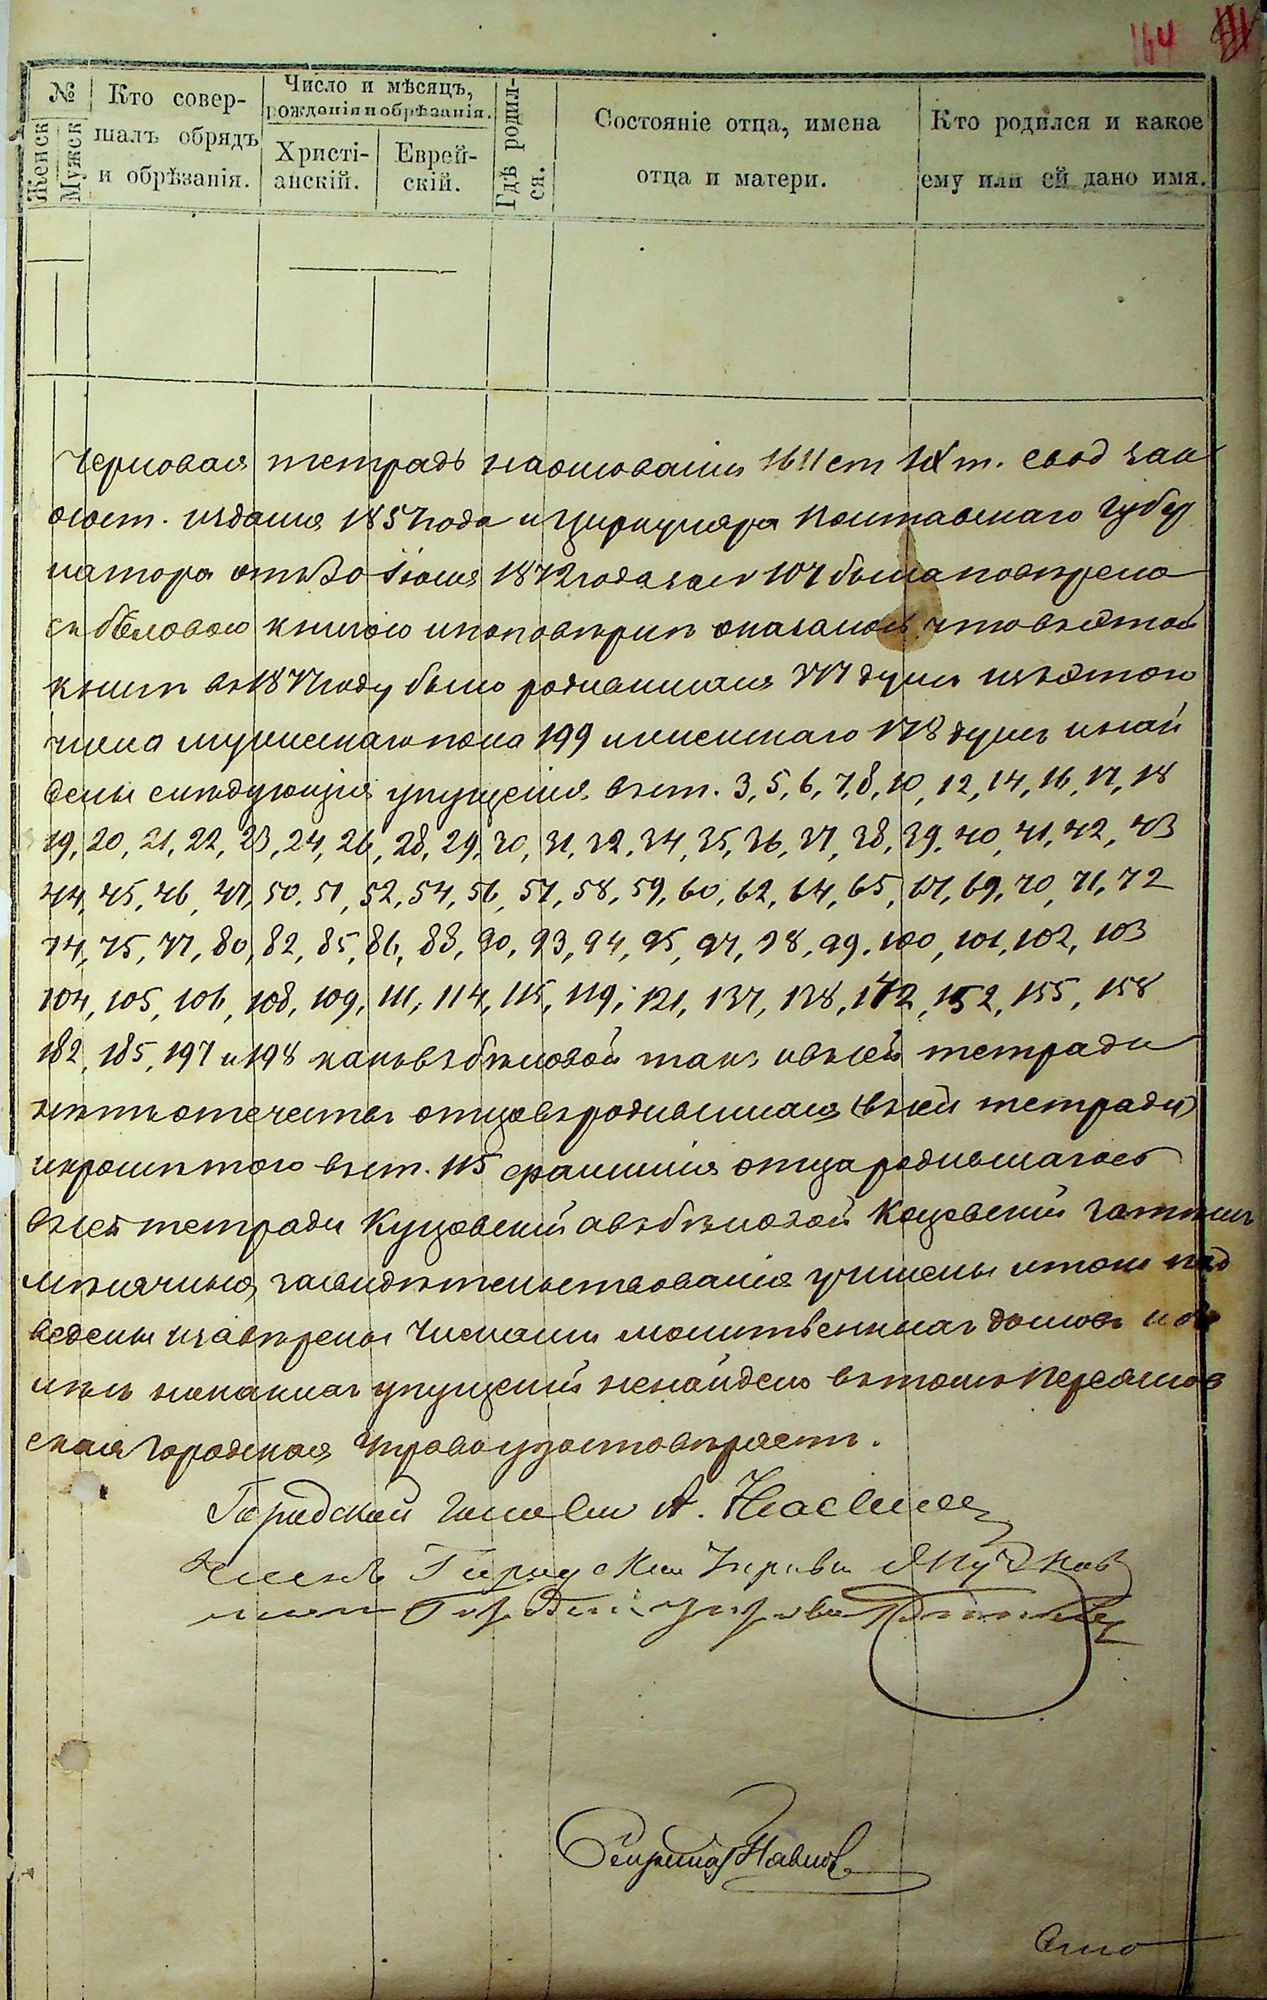 164
№
Женск
Мужск
Кто совер-
шалъ обрядъ
и обрѣзанія.
Число и мѣсяцъ,
рожденія и обрѣзанія.
Христі-
анскій.
Еврей-
скій.
Гдѣ родил-
ся.
Состояніе отца, имена
отца и матери.
Кто родился и какое
ему или ей дано имя.
Черновая тетрадь на основаніи 1611 ст IX т. свод зак
о сост. изданія 1857 года и циркуляра Полтавскаго Губер
натора отъ 30 Іюня 1872 года за № 107 была повѣрена
съ бѣловою книгою и по повѣрке оказалось что въ этой
книгѣ въ 1877 году было родившихся 377 душъ изъ этого
числа мужескаго пола 199 и женскаго 178 душъ и най
дены слѣдующія упущенія въ ст. 3, 5, 6, 7, 8, 10, 12, 14, 16, 17, 18
19, 20, 21, 22, 23, 24, 26, 28, 29, 30, 31, 32, 34, 35, 36, 37, 38, 39, 40, 41, 42, 43
44, 45, 46, 47, 50, 51, 52, 54, 56, 57, 58, 59, 60, 62, 64, 65, 67, 69, 70, 71, 72
74, 75, 77, 80, 82, 85, 86, 88, 90, 93, 94, 95, 97, 98, 99, 100, 101, 102, 103
104, 105, 106, 108, 109, 111, 114, 115, 119, 121, 137, 138, 142, 152, 155, 158
182, 185, 197 и 198 какъ въ бѣловой такъ и въ сей тетради
нѣтъ отечествъ отцовъ родившихся (въ сей тетради)
и кромѣ того въ ст. 115 фамилія отца родившагося
въ сей тетради Куцовскій а въ бѣловой Коцовскій затѣмъ
мѣсячныя засвидѣтельствованія учинены итоги под
ведены и завѣрены членами молитвенныхъ домовъ и бо
лѣе никакихъ упущеній не найдено въ томъ Переяслов
ская Городская Управа удостовѣряетъ.
Городской Голова А.
Членъ Городской Управы
Членъ Городской Управы
Секретарь Павлов
Сто